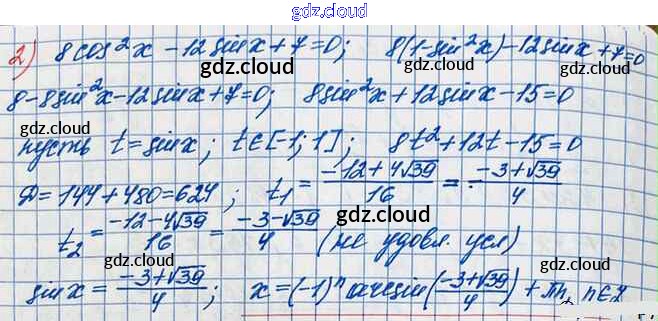 gdz.cloud
2) 8cos²x - 12sinx + 7 = 0; 8(1-sin²x) - 12sinx + 7 = 0
gdz.cloud gdz.cloud
8 - 8sin²x - 12sinx + 7 = 0; 8sin²x + 12sinx - 15 = 0
gdz.cloud gdz.cloud
пусть t = sinx; t∈[-1; 1]; 8t² + 12t - 15 = 0
gdz.cloud gdz.cloud
D = 144 + 480 = 624; t₁ = (-12+4√39)/16 = (-3+√39)/4
gdz.cloud
t₂ = (-12-4√39)/16 = (-3-√39)/4 (не удовл. усл)
gdz.cloud gdz.cloud
sinx = (-3+√39)/4; x = (-1)ⁿ arcsin((-3+√39)/4) + πn, n∈Z
gdz.cloud gdz.cloud